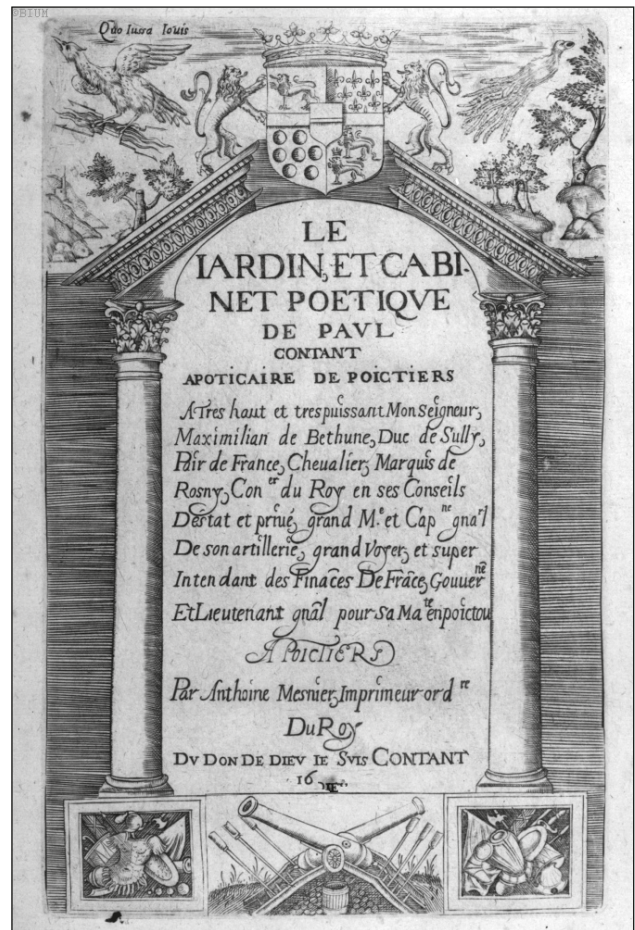 ©BIUM
Quo Iussa Iouis
LE
IARDIN, ET CABI-
NET POETIQVE
DE PAVL
CONTANT
APOTICAIRE DE POICTIERS
A Tres haut et trespuissant Monseigneur,
Maximilian de Bethune, Duc de Sully,
Pair de France, Cheualier, Marquis de
Rosny, Con.er du Roy en ses Conseils
Destat et priué, grand M.e et Cap.ne gnāl
De son artillerie, grand Voyer, et super
Intendant des Fināces De Frāce, Gouuerne
Et Lieutenant gnāl pour sa Ma.te en poictou
A POICTIERS
Par Anthoine Mesnier, Imprimeur ord.re
Du Roy
DV DON DE DIEV IE SVIS CONTANT
16